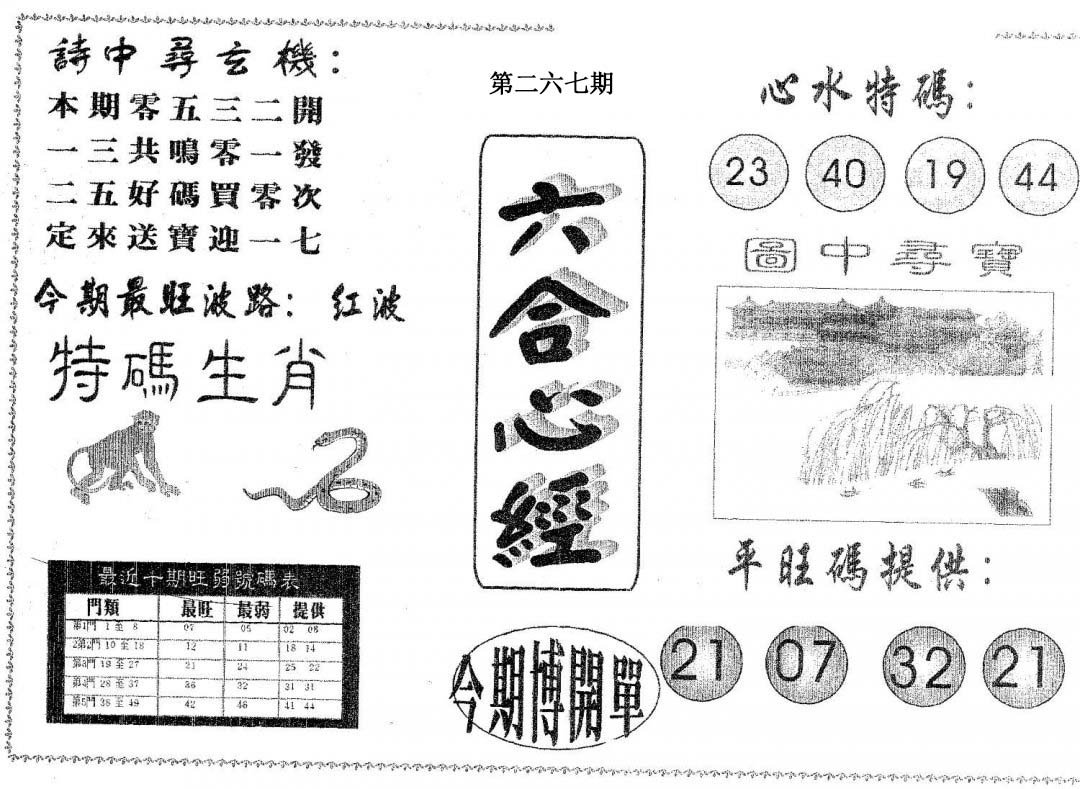 詩中尋玄機：
本期零五三二開
一三共鳴零一發
二五好碼買零次
定來送寶迎一七
今期最旺波路：紅波
特碼生肖
最近十期旺弱號碼表
門類 最旺 最弱 提供
第1門 1 至 8 07 05 02 08
第2門 10 至 18 12 11 18 14
第3門 19 至 27 21 24 25 22
第4門 28 至 37 36 32 31 31
第5門 38 至 49 42 46 41 44
第二六七期
六合心經
今期博開單
心水特碼：
23 40 19 44
圖中尋寶
平旺碼提供：
21 07 32 21